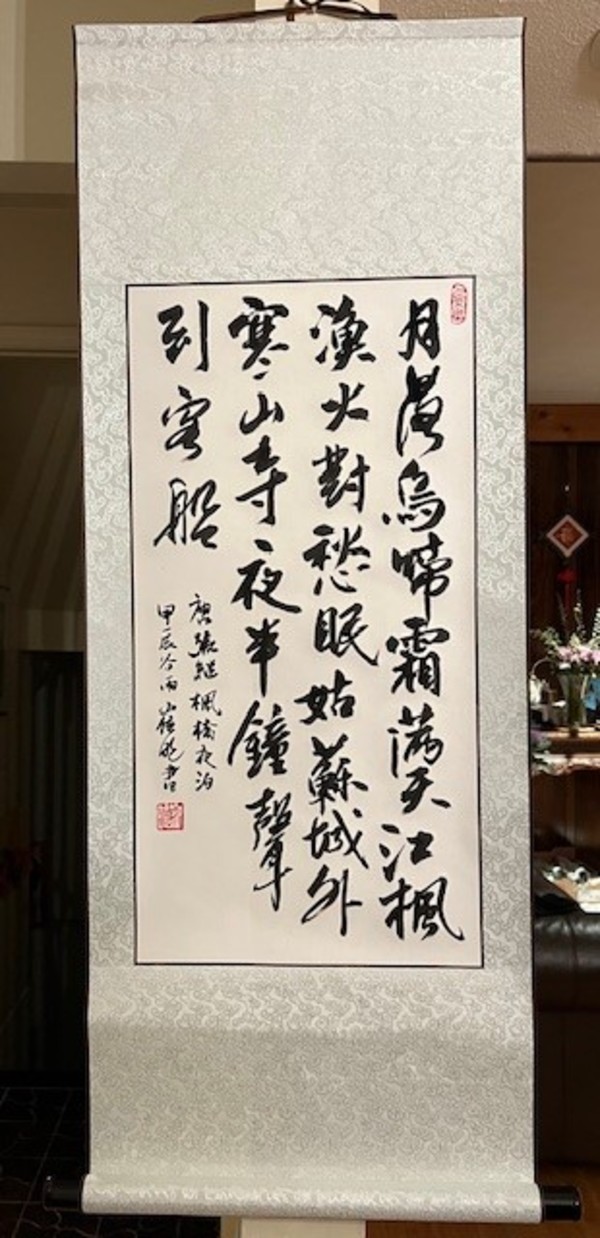 月落烏啼霜满天江楓
漁火對愁眠姑蘇城外
寒山寺夜半鐘聲
到客船
唐張継楓橋夜泊
甲辰冷雨崔
書